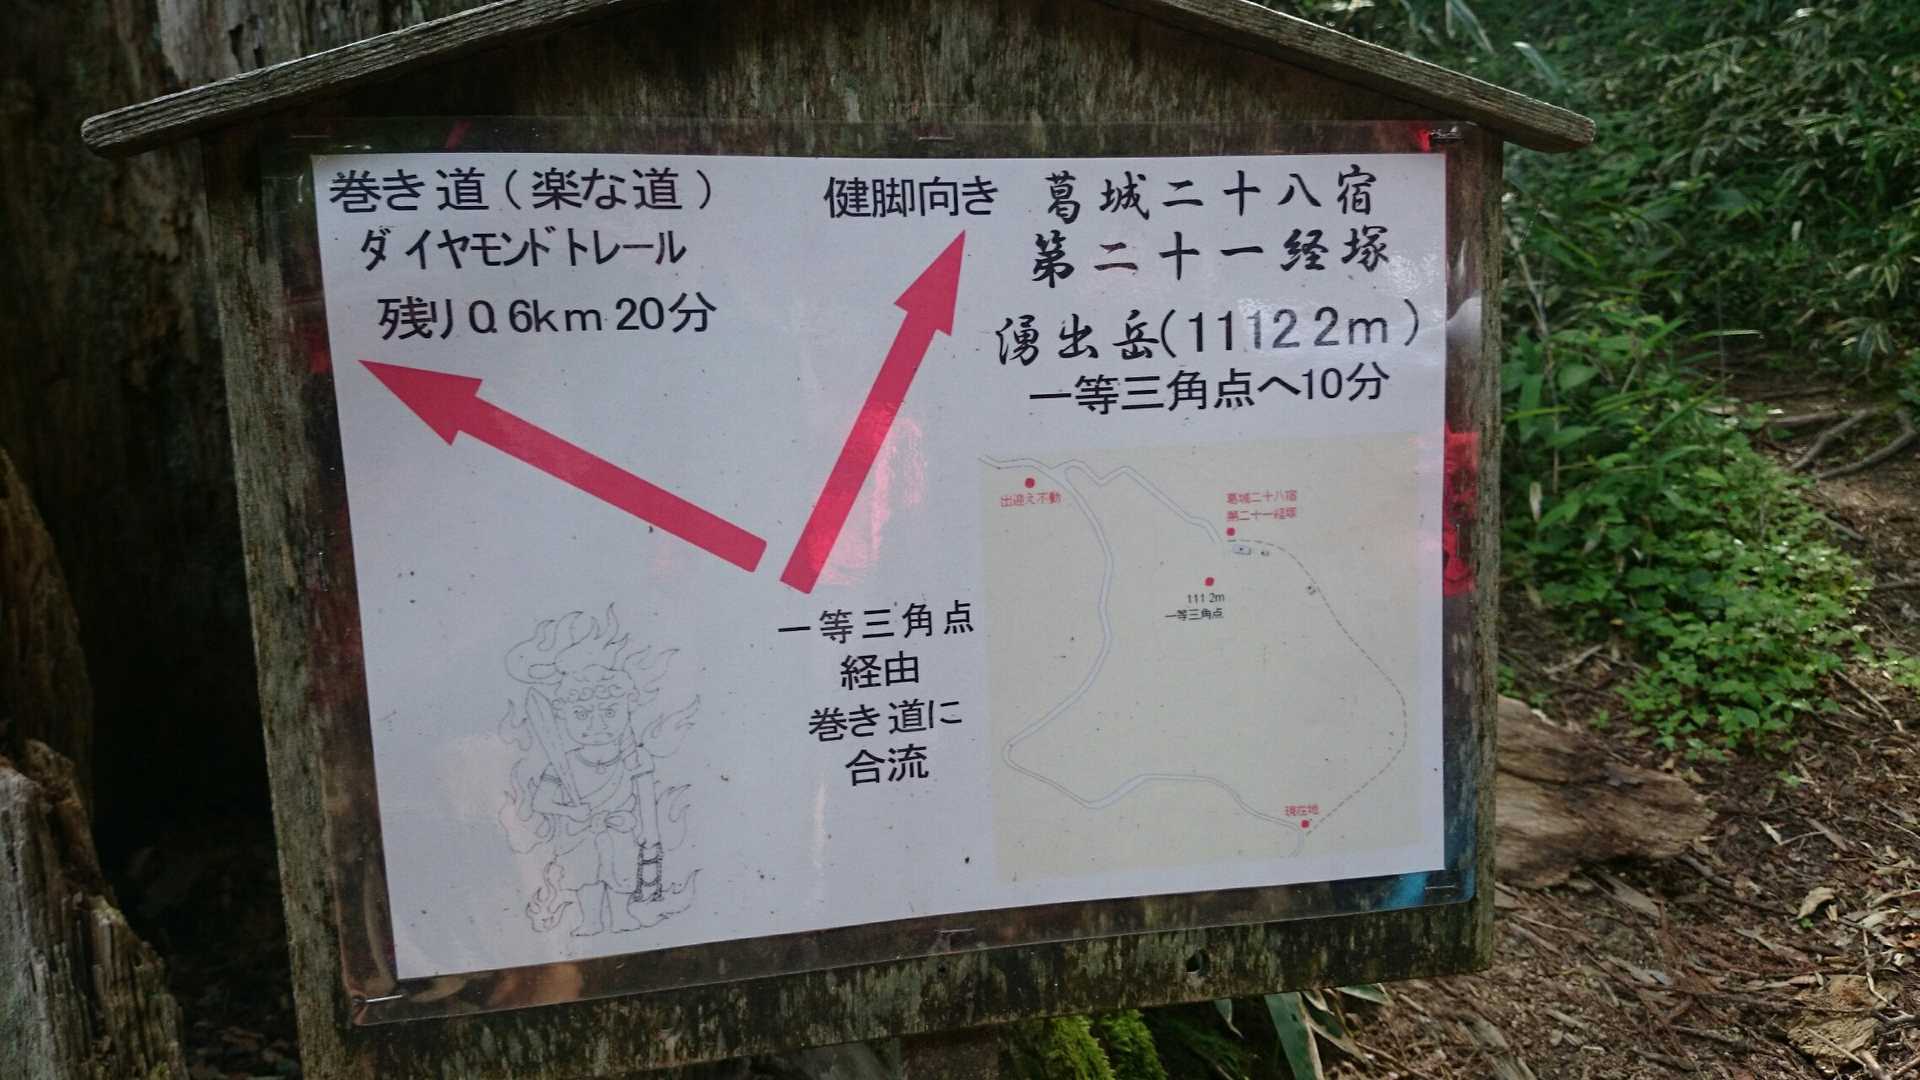 巻き道(楽な道)
ダイヤモンドトレール
残り0.6km 20分
健脚向き
葛城二十八宿
第二十一経塚
湧出岳(1112.2m)
一等三角点へ10分
一等三角点
経由
巻き道に
合流
出迎え不動
葛城二十八宿
第二十一経塚
1112m
一等三角点
現在地